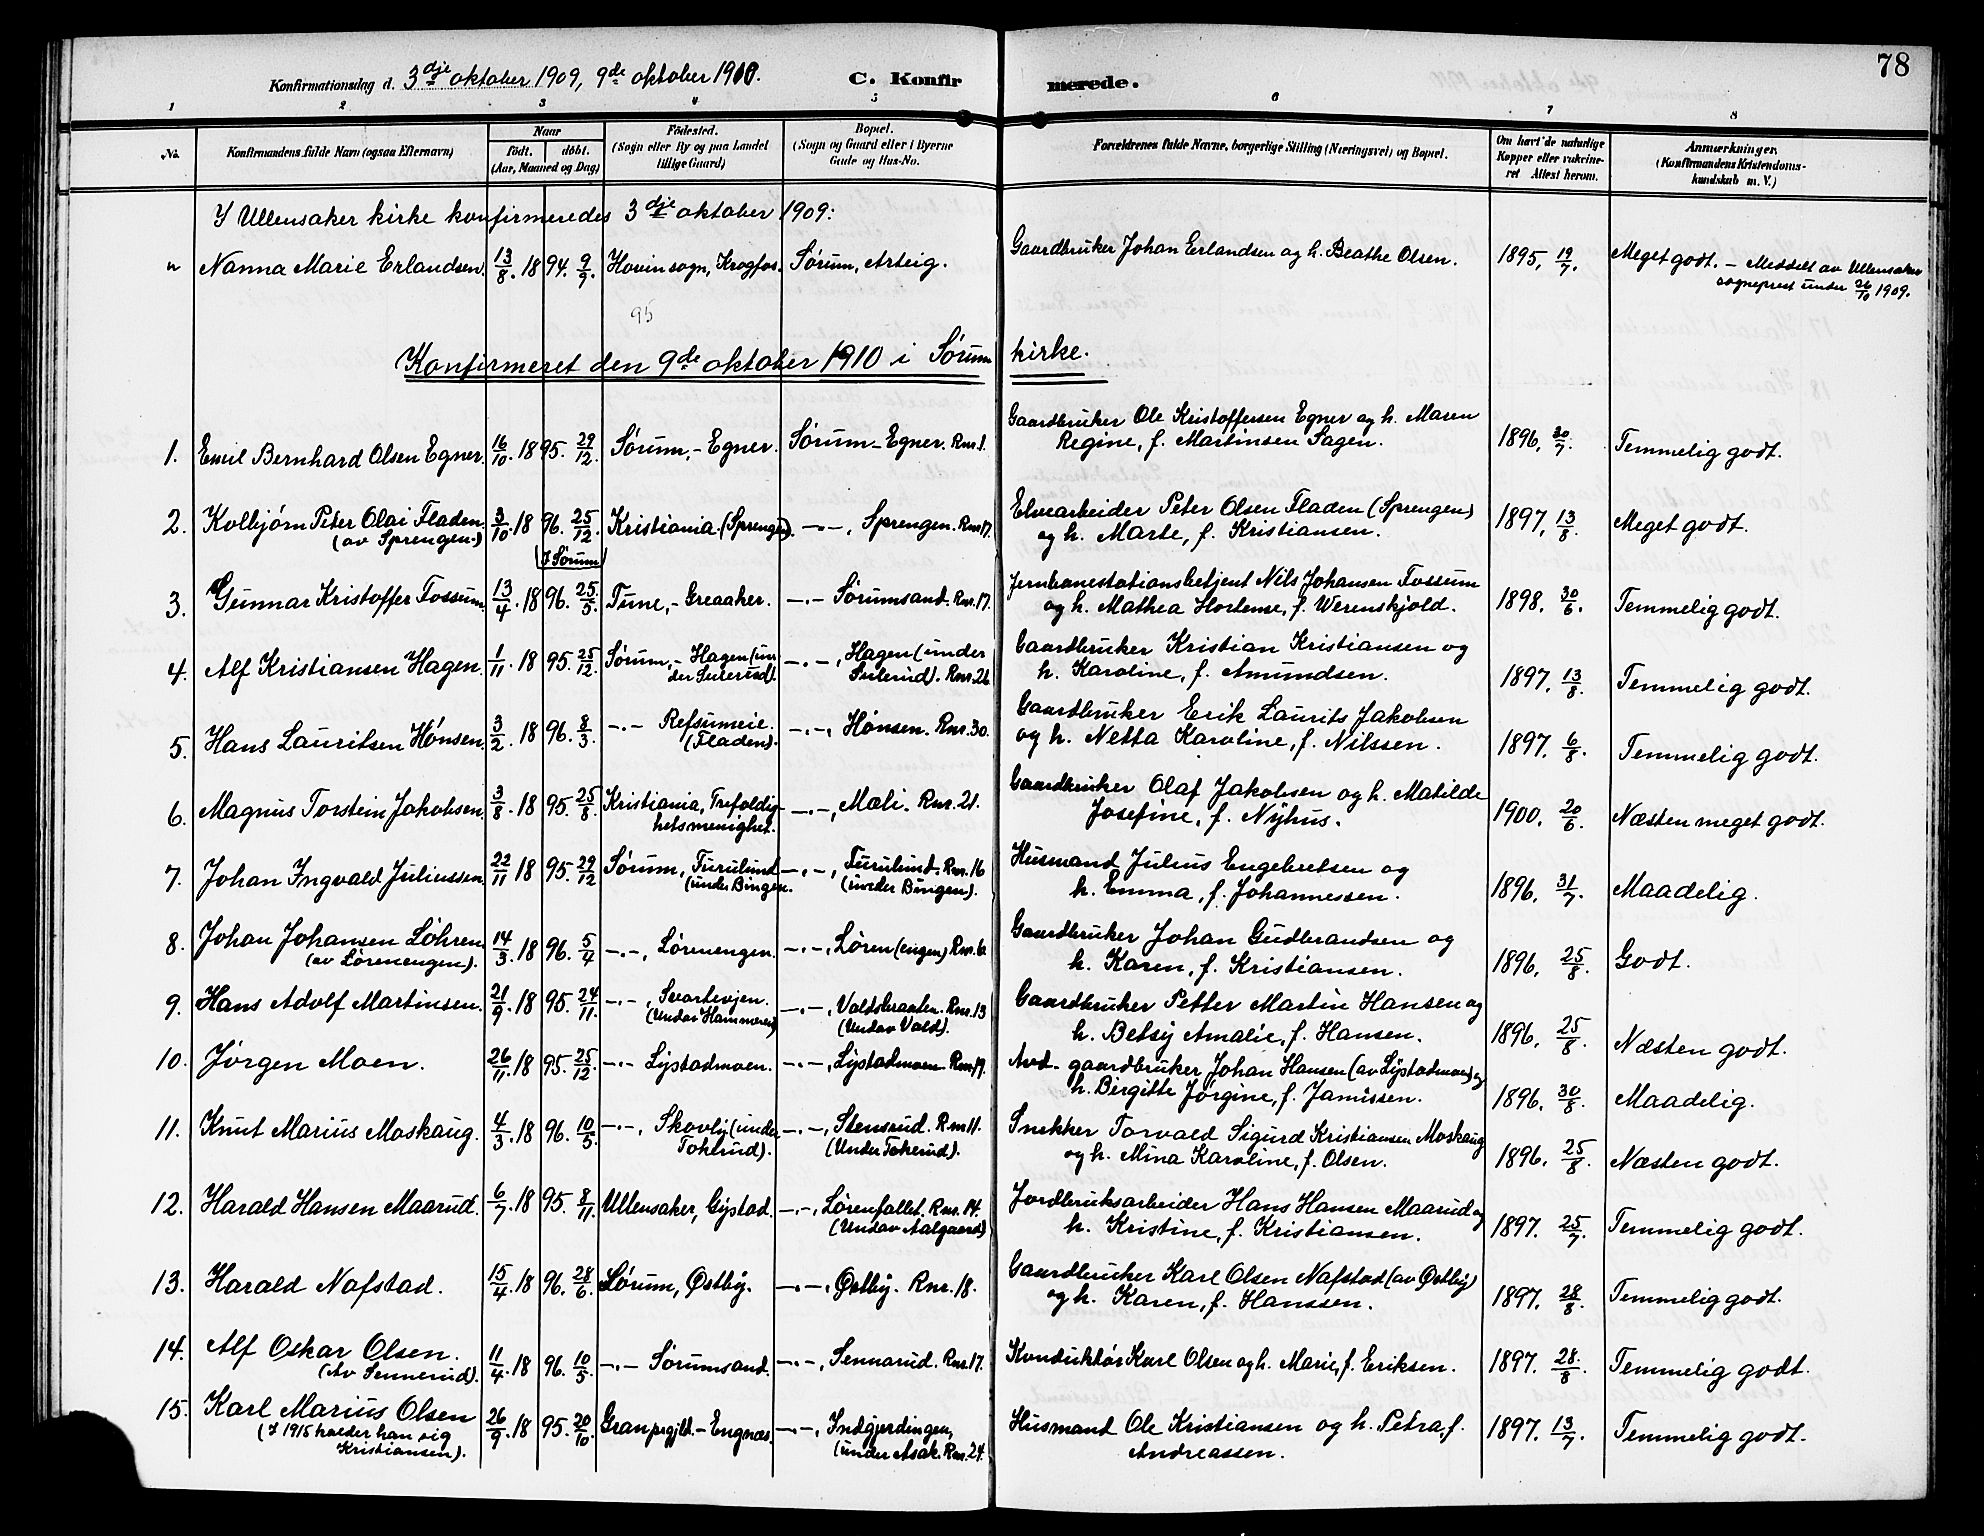 78
Konfirmationsdag d. 3dje oktober 1909, 9de oktober 1910. C. Konfirmerede.
1 2 3 4 5 6 7 8
No. Konfirmandens fulde Navn (ogsaa Efternavn) Naar født. døbt. (Aar, Maaned og Dag) Fødested. (Sogn eller By og paa Landet tillige Gaard) Bopæl. (Sogn og Gaard eller i Byerne Gade og Hus-No. Forældrenes fulde Navne, borgerlige Stilling (Næringsvei) og Bopæl. Om havt de naturlige Kopper eller vakcineret Attest herom. Anmærkninger. (Konfirmandens Kristendomskundskab m. V.)
I Ullensaker kirke konfirmeredes 3dje oktober 1909:
" Nanna Marie Erlandsen. 13/8. 1894. 9/9. Hovin sogn, Krogfos. Sørum, Arteig. Gaardbruker Johan Erlandsen og h. Beathe Olsen. 1895, 19/7. Meget godt. – Meddelt av Ullensaker
sogneprest under 26/10 1909.
95
Konfirmeret den 9de oktober 1910 i Sørum kirke.
1. Emil Bernhard Olsen Egner. 16/10. 1895. 29/12. Sørum, - Egner. Sørum - Egner. Rnr. 1. Gaardbruker Ole Kristoffersen Egner og h. Maren
Regine, f. Martinsen Sagen. 1896, 30/7. Temmelig godt.
2. Kolbjørn Peter Olai Fladen. (av Sprengen.) 3/10. 1896. 25/12. (I Sørum) Kristiania. (Sprengen). –"–, Sprengen. Rnr. 17. Elvearbeider Peter Olsen Fladen (Sprengen)
og h. Marte, f. Kristiansen. 1897, 13/8. Meget godt.
3. Gunnar Kristoffer Fossum. 13/4. 1896. 25/5. Tune, - Greaaker. –"– Sørumsand. Rnr. 17. Jernbanestationsbetjent Nils Johansen Fossum
og h. Mathea Hortense, f. Werenskjold. 1898. 30/6. Temmelig godt.
4. Alf Kristiansen Hagen. 1/11. 1895. 25/12. Sørum, - Hagen (under Seilerud). –"–, Hagen (under Seilerud). Rnr. 26. Gaardbruker Kristian Kristiansen og
h. Karoline, f. Amundsen. 1897. 13/8. Temmelig godt.
5. Hans Lauritsen Hønsen. 3/2. 1896. 8/3. –"– Refsumeie. (Fladen). –"–, Hønsen. Rnr. 30. Gaardbruker Erik Laurits Jakobsen
og h. Netta Karoline, f. Nilssen. 1897. 6/8. Temmelig godt.
6. Magnus Torstein Jakobsen. 3/8. 1895. 25/8. Kristiania, Trefoldighetsmenighet. –"–, Mæli. Rnr. 21. Gaardbruker Olaf Jakobsen og h. Matilde
Josefine, f. Nyhus. 1900. 20/6. Næsten meget godt.
7. Johan Ingvald Juliussen. 22/11. 1895. 29/12 Sørum, Furulund (under Bingen. –"–, Furulund. Rnr. 16 (under Bingen). Husmand Julius Engebretsen og
h. Emma, f. Johannessen. 1896. 31/7. Maadelig.
8. Johan Johansen Løhren. (av Lørenengen). 14/3. 1896. 5/4 –"–, Lørenengen. –"–, Løren (engen) Rnr. 6. Gaardbruker Johan Gudbrandsen og
h. Karen, f. Kristiansen. 1896, 25/8. Godt.
9. Hans Adolf Martinsen. 21/9. 1895. 24/11. –"–, Svartevjen. (Under Hammeren) –"–, Valdsbraaten. Rnr. 13 (Under Vald). Gaardbruker Petter Martin Hansen og
h. Betsy Amalie, f. Hansen. 1896, 25/8. Næsten godt.
10. Jørgen Moen. 26/11. 1895. 25/12. –"– Lystadmoen. –"–, Lystadmoen. Rnr. 17. Avd. gaardbruker Johan Hansen (av Lystadmoen) og
h. Birgitte Jørgine, f. Janissen. 1896. 30/8. Maadelig.
11. Knut Marius Moskaug. 4/3. 1896. 10/5. –"–, Skovly (under Tokerud). –"–, Stensrud. Rnr 11. (Under Tokerud). Snekker Torvald Sigurd Kristiansen Moskaug
og h. Mina Karoline, f. Olsen. 1896. 25/8. Næsten godt.
12. Harald Hansen Maarud. 6/7. 1895. 8/11. Ullensaker, Gystad. –"–, Lørenfallet. Rnr. 14. (Under Aalgaard) Jordbruksarbeider Hans Hansen Maarud og
h. Kristine, f. Kristiansen. 1897. 25/7. Temmelig godt.
13. Harald Nafstad. 15/4. 1896. 28/6. Sørum, Østby. –"–. Østby. Rnr. 18. Gaardbruker Karl Olsen Nafstad (av Østby)
og h. Karen, f. Hanssen. 1897. 28/8. Temmelig godt.
14. Alf Oskar Olsen. (Av Sennerud). 11/4. 1896. 10/5. –"– Sørumsand. –"–, Sennarud. Rnr. 17. Konduktør Karl Olsen og h. Marie, f. Eriksen. 1897. 28/8. Temmelig godt.
15. Karl Marius Olsen (I 1915 holder han sig Kristiansen). 26/9. 1895. 20/10. Gran prgjld. - Engnæs. –"–, Indgjerdingen, (under Asak. Rnr. 24. Husmand Ole Kristiansen og h. Petra, f.
Andreassen. 1897. 13/7. Temmelig godt.